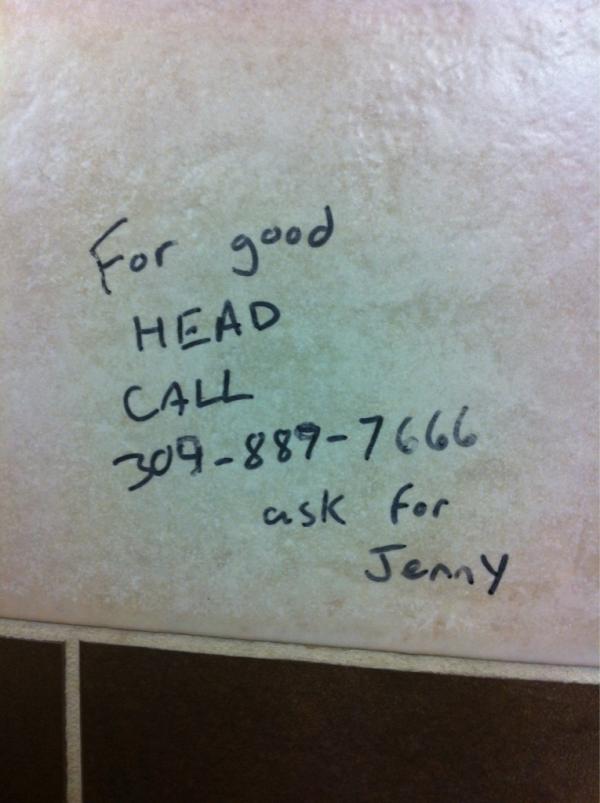 For good
HEAD
CALL
309-889-7666
ask for
Jenny